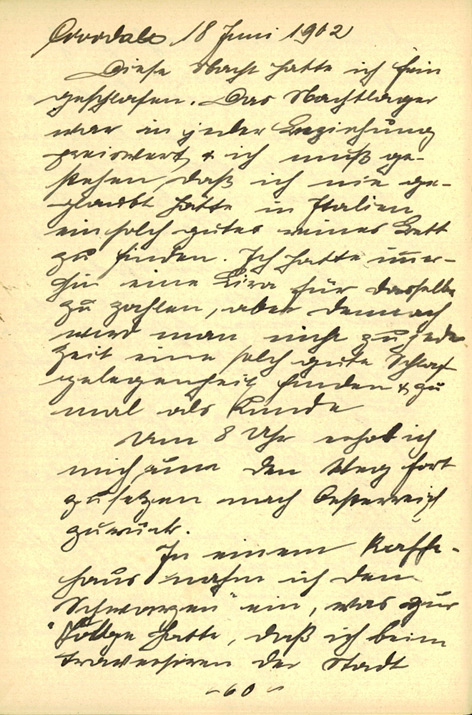 18 Juni 1902
Diese Nacht hatte ich fein
geschlafen. Das Nachtlager
war in jeder Beziehung
preiswert & ich muß ge-
stehen daß ich nie ge-
glaubt hätte in Italien
ein solch gutes reines Bett
zu finden. Ich hatte immer-
hin eine Lira für dasselbe
zu zahlen, aber dennoch
wird man nicht zu jeder
Zeit eine solch gute Schlaf
gelegenheit finden & zu
mal als Kunde
Um 8 Uhr erhob ich
mich um den Weg fort
zusetzen nach Oesterreich
zurück.
In einem Kaffe-
haus nahm ich den
Schwarzen" ein, was zur
Folge hatte, daß ich beim
traversiren der Stadt
-60-